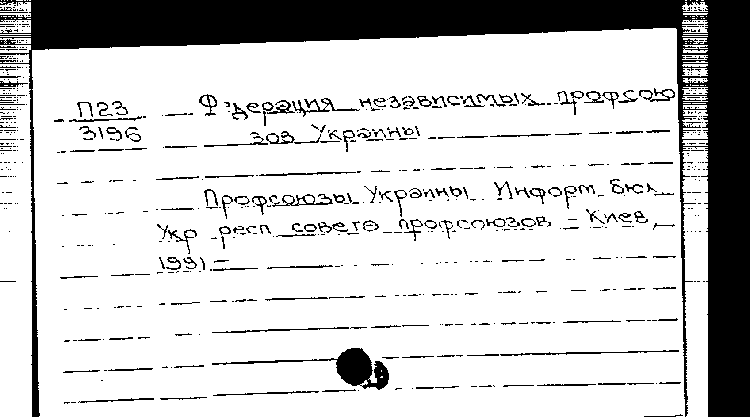 П23 Федерация независимых профсою
3196 зов Украины
Профсоюзы Украины Информ. бюл.
Укр респ совета профсоюзов. – Киев,
1991 –